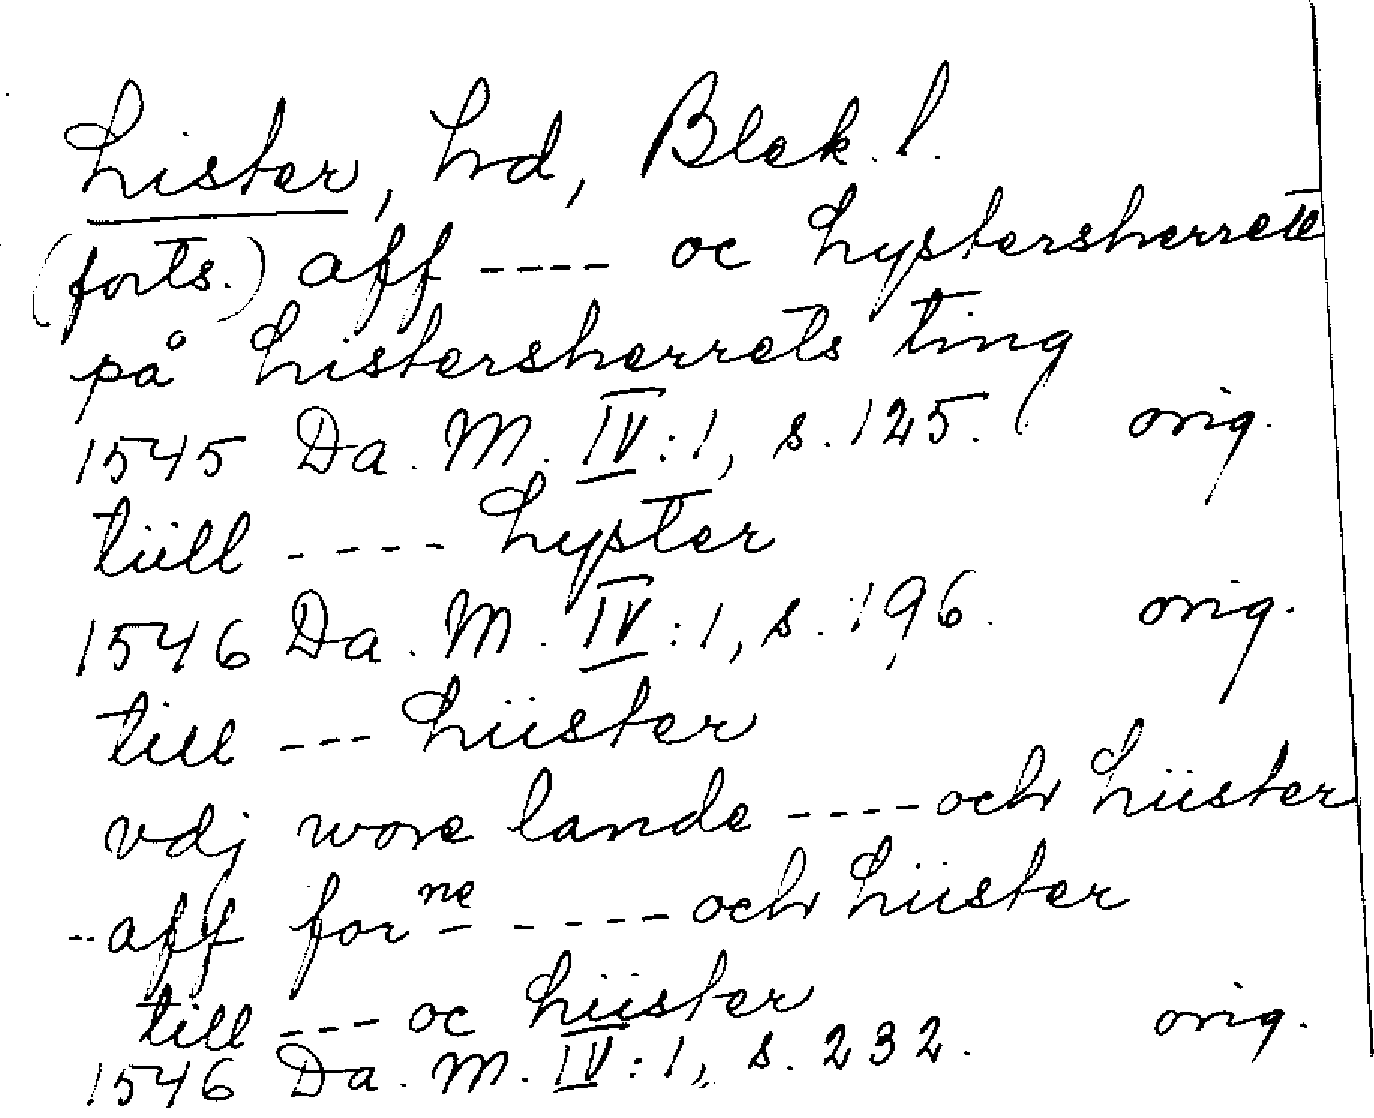 Lister, hd, Blek. l.
(forts.) aff ---- oc Lystersherrett
på Listersherrets ting
1545 Da. M. IV:1, s. 125. orig.
tiill ---- Lyster
1546 Da. M. IV:1, s. 196. orig.
till --- Liister
vdj wore lande ---- och Liister
-- aff for ne - ---- och Liister
till --- oc Liister
1546 Da. M. IV:1, s. 232. orig.